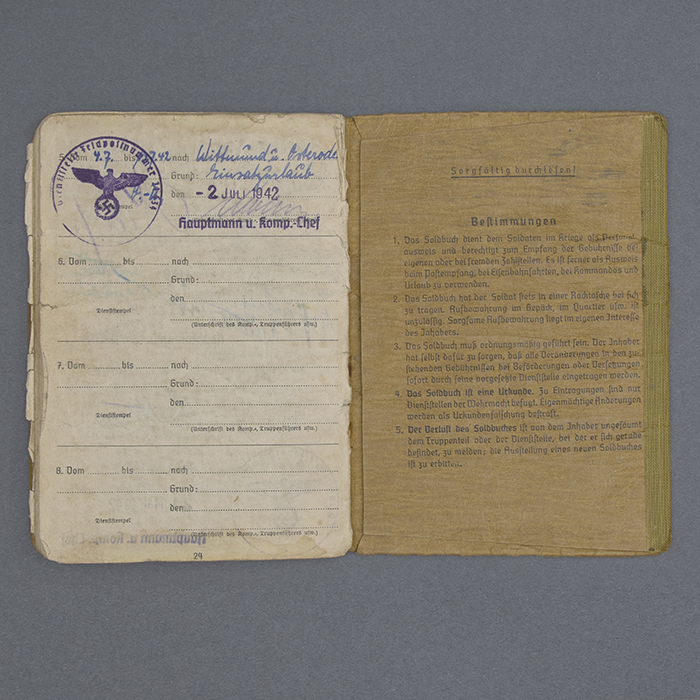 5. Vom 4.7. bis 42 nach Wittmund u. Osterode
Grund: Einsatzurlaub
den - 2 JULI 1942
Dienststelle Feldpostnummer
Hauptmann u. Komp.-Chef
6. Vom bis nach
Grund:
den
Dienststempel
(Unterschrift des Komp.-, Truppenführers usw.)
7. Vom bis nach
Grund:
den
Dienststempel
(Unterschrift des Komp.-, Truppenführers usw.)
8. Vom bis nach
Grund:
den
Dienststempel
(Unterschrift des Komp.-, Truppenführers usw.)
Hauptmann u. Komp.-Chef
24
Sorgfältig durchlesen!
Bestimmungen
1. Das Soldbuch dient dem Soldaten im Kriege als Personal-
ausweis und berechtigt zum Empfang der Gebührnisse bei
eigenen oder bei fremden Zahlstellen. Es ist ferner als Ausweis
beim Postempfang, bei Eisenbahnfahrten, bei Kommandos und
Urlaub zu verwenden.
2. Das Soldbuch hat der Soldat stets in einer Rocktasche bei sich
zu tragen. Aufbewahrung im Gepäck, im Quartier usw. ist
unzulässig. Sorgsame Aufbewahrung liegt im eigenen Interesse
des Inhabers.
3. Das Soldbuch muß ordnungsmäßig geführt sein. Der Inhaber
hat selbst dafür zu sorgen, daß alle Veränderungen in den zu-
stehenden Gebührnissen bei Beförderungen oder Versetzungen
sofort durch seine vorgesetzte Dienststelle eingetragen werden.
4. Das Soldbuch ist eine Urkunde. Zu Eintragungen sind nur
Dienststellen der Wehrmacht befugt. Eigenmächtige Änderungen
werden als Urkundenfälschung bestraft.
5. Der Verlust des Soldbuches ist von dem Inhaber ungesäumt
dem Truppenteil oder der Dienststelle, bei der er sich gerade
befindet, zu melden; die Ausstellung eines neuen Soldbuches
ist zu erbitten.